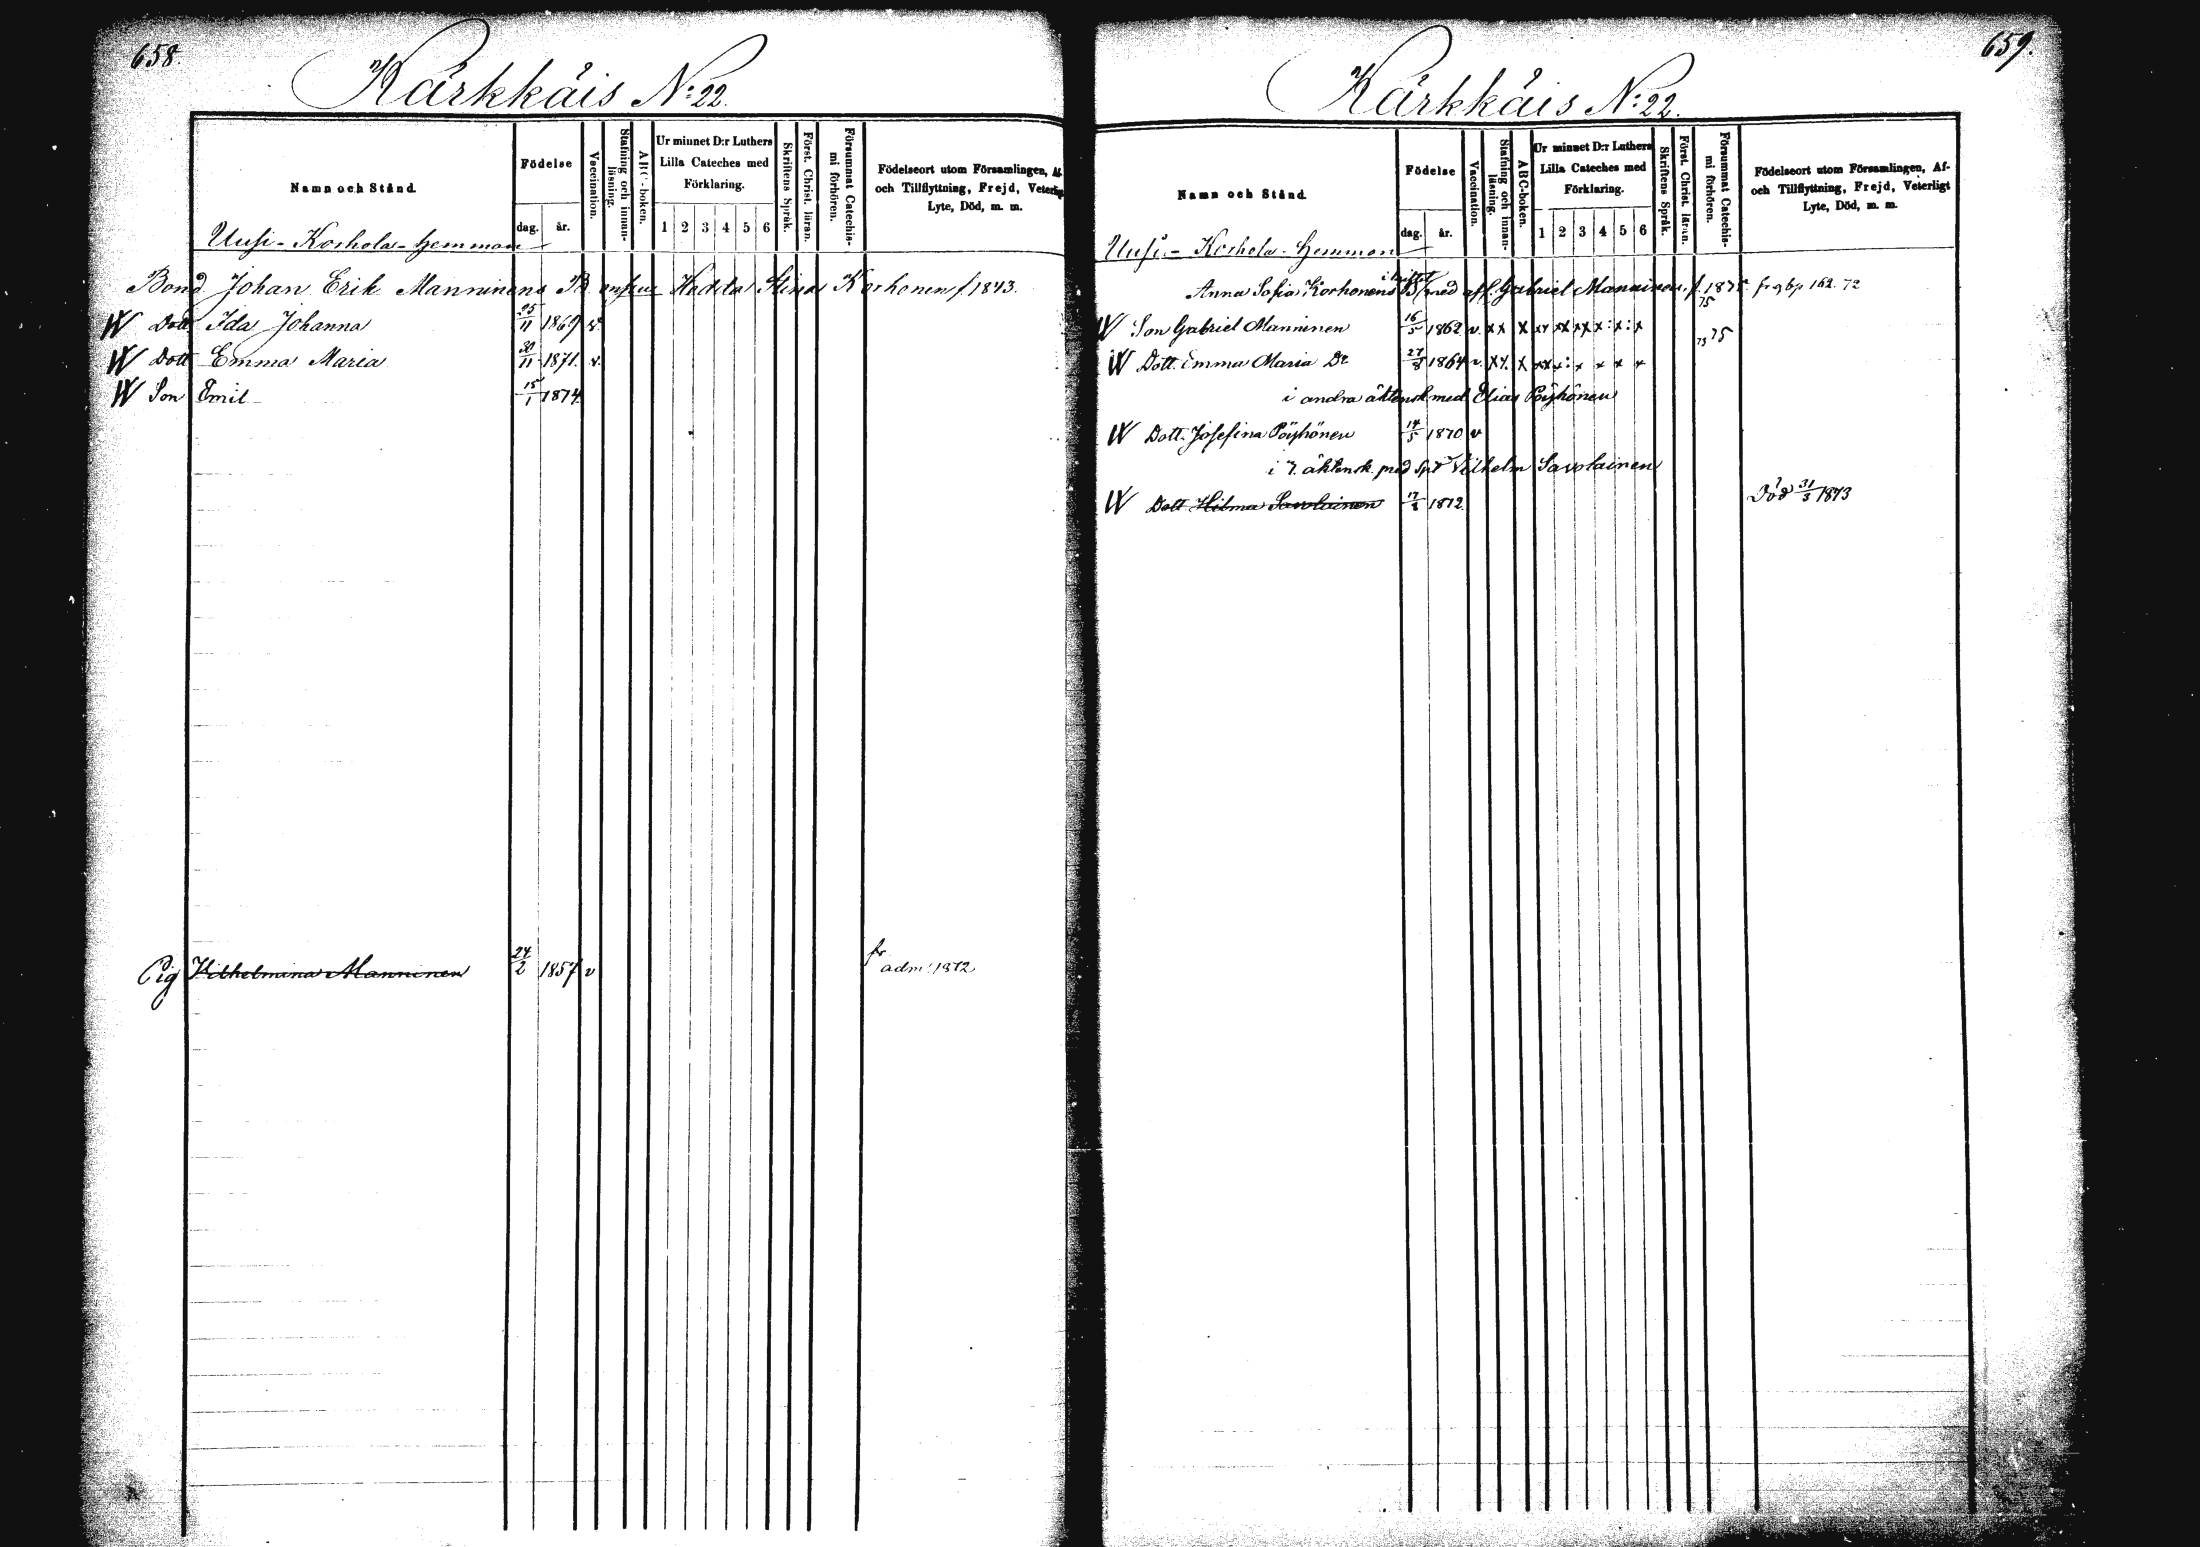 658.
Kärkkäis No: 22.
Namn och Stånd.
Födelse
dag.
år.
Vaccination.
Stafning och innanläsning.
ABC-boken.
Ur minnet D:r Luthers
Lilla Cateches med
Förklaring.
1 2 3 4 5 6
Skriftens Språk.
Först. Christ. läran.
Försummat Catechismi förhören.
Födelseort utom Församlingen, Af-
och Tillflyttning, Frejd, Veterligt
Lyte, Död, m. m.
Uusi-Korhola-hemman
Bond Johan Erik Manninens B. Hedda Stina Korhonen f. 1843.
Dott Ida Johanna 25/11 1869 v
Dott Emma Maria 30/11 1871. v.
Son Emil 15/1 1874
Pig Wilhelmina Manninen 24/2 1857 v fr adm. 1872
659.
Kärkkäis No: 22.
Namn och Stånd.
Födelse
dag.
år.
Vaccination.
Stafning och innanläsning.
ABC-boken.
Ur minnet D:r Luthers
Lilla Cateches med
Förklaring.
1 2 3 4 5 6
Skriftens Språk.
Först. Christ. läran.
Försummat Catechismi förhören.
Födelseort utom Församlingen, Af-
och Tillflyttning, Frejd, Veterligt
Lyte, Död, m. m.
Uusi-Korhola-Hemman
Anna Sofia Korhonens B. med afl. Gabriel Manninen, 162. 72
Son Gabriel Manninen 16/5 1862 v. xx x xx xx xx x: x: x 75
Dott. Emma Maria Do 27/8 1864 v. xx. x xx x: x x x x
i andra äktensk med Elias Pöyhönen
Dott. Josefina Pöyhönen 14/5 1870 v
i 3. äktensk. med Vilhelm Savolainen
Dott Hilma Savolainen 1872. Död 31/3 1873